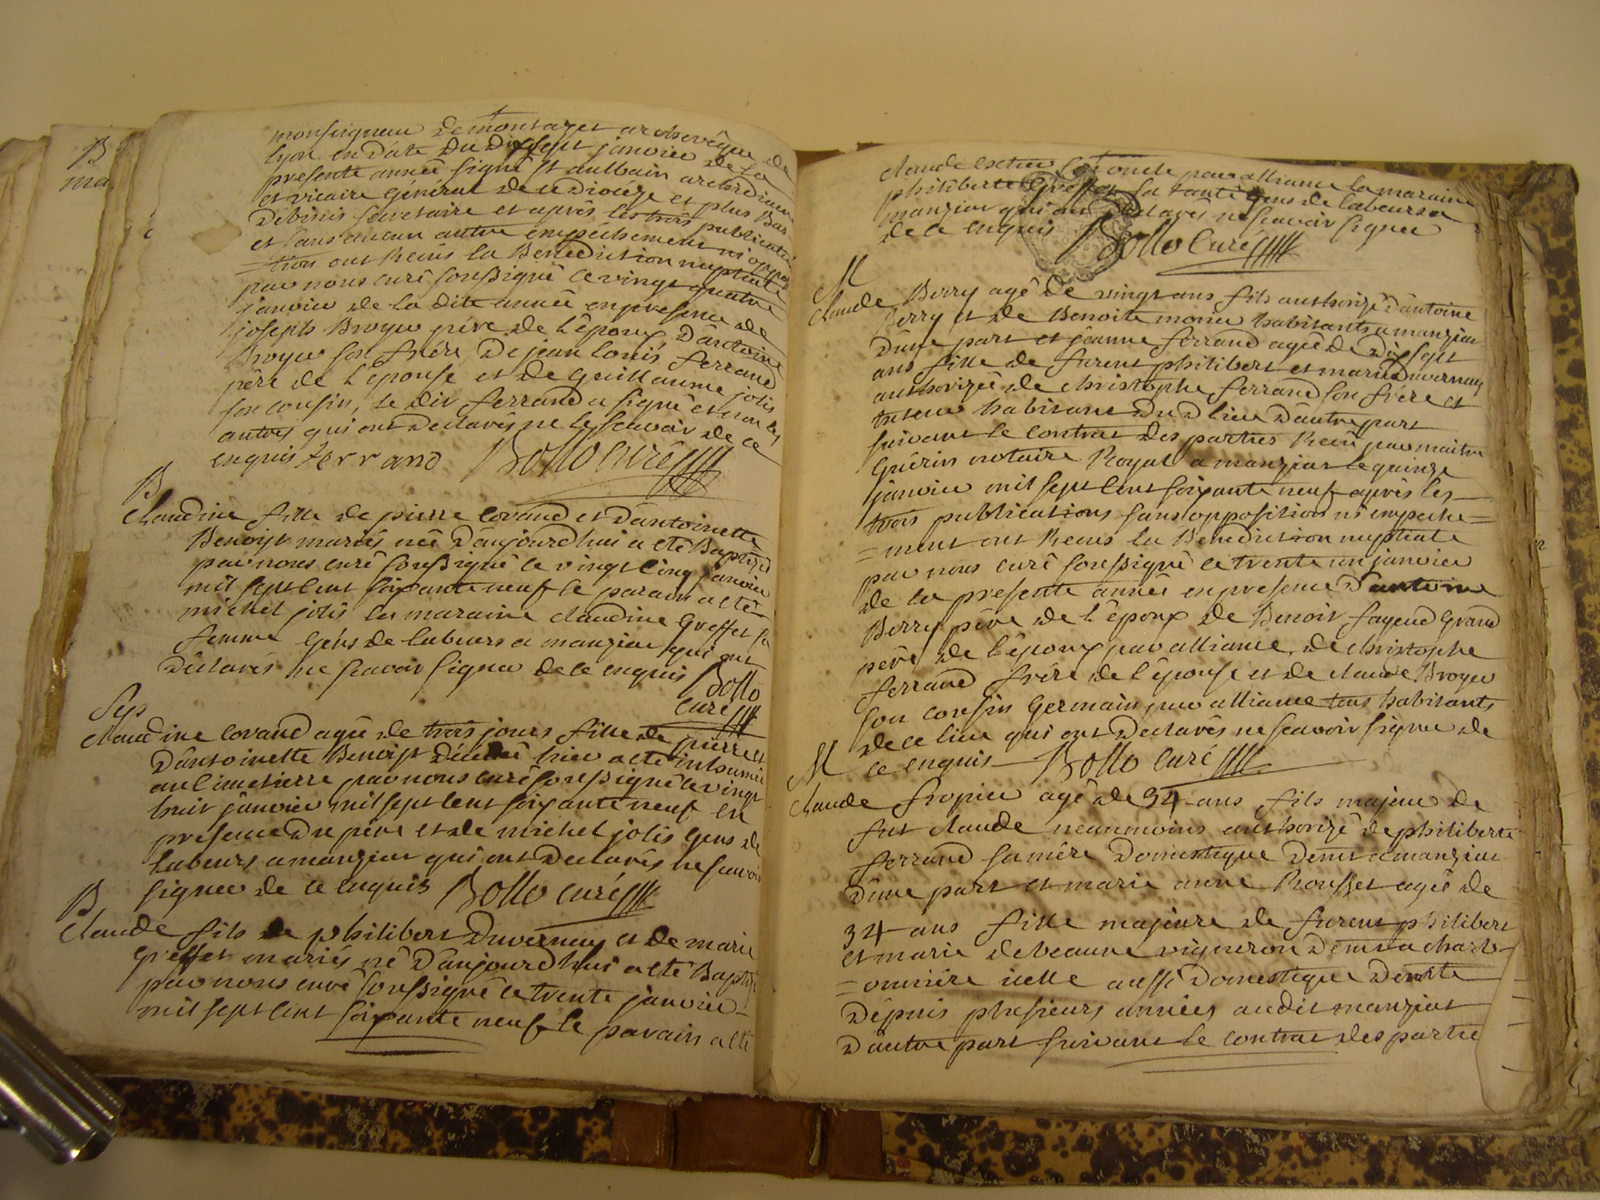 B
ma
monseigneur de montazet archevêque de
lyon en date du dix sept janvier de la
presente année signé St aulbain archidiacre
et vicaire général de ce diocèze et plus bas
Debinis secretaire et après les trois publicati
et sans aucun autre empechement ni oppo
=tion ont Recus la Benediction nuptiale
par nous curé soussigné ce vingt quatre
janvier de la dite année en presence de
joseph Broyer père de l'époux D'antoine
Broyer son frère De jean louis ferrand
père de l'épouse et de guillaume jolis
son cousin, le dit ferrand a signé et non les
autres qui ont Declarés ne le scavoir de ce
enquis ferrand Bollo Curé
B
Claudine fille de pierre Covand et d'antoinette
Benoist mariés née d'aujourd'hui a eté Baptisé
par nous curé soussigné le vingt cinq janvier
mil sept cent soixante neuf le parain a eté
michel jolis la maraine claudine Greffet sa
femme gens de labeurs a manziat qui ont
Déclarés ne scavoir signer de ce enquis Bollo
curé
Sep
Claudine Covand agée de trois jours fille de pierre et
D'antoinette Benoist décedé hier a eté inhumée
au cimetierre par nous curé soussigné le vingt
huit janvier mil sept cent soixante neuf en
presence Du père et de michel jolis gens de
labeurs a manziat qui ont Declarés ne scavoir
signer de ce enquis Bollo curé
B
Claude fils de philibert Duvernay et de marie
Greffet mariés né D'aujourd'hui a eté Baptis
par nous curé soussigné le trente janvier
mil sept cent soixante neuf le parain a eté
claude son oncle par alliance la maraine
philiberte Greffet sa tante gens de labeurs a
manziat qui ont Declarés ne scavoir signer
de ce enquis Bollo Curé
M
Claude Berry agé de vingt ans fils authorizé d'antoine
Berry et de Benoite monin habitants a manziat
D'une part et jeanne ferrand agée de Dix sept
ans fille de furent philibert et marie Duvernay
authorizée de christophe ferrand son frère et
tuteur habitant Du D lieu D'autre part
suivant le contrat des parties Recu par maitre
Guérin notaire Royal a manziat le quinze
janvier mil sept cent soixante neuf après les
trois publications sans opposition ni empeche=
=ment ont Recus la Benediction nuptiale
par nous curé soussigné le trente un janvier
de la presente année en presence D'antoine
Berry père de l'époux de Benoit fayend Grand
père de l'époux par alliance, de christophe
ferrand frère de l'épouse et de claude Broyer
son cousin germain par alliance tous habitants
de ce lieu qui ont Declarés ne scavoir signer de
ce enquis Bollo curé
M
Claude fropier agé de 34 ans fils majeur de
fut claude neanmoins authorizé de philiberte
ferrand sa mère Domestique Demt a manziat
D'une part et marie anne Rousset agée de
34 ans fille majeure de furent philibert
et marie debeaune vigneron Demt a charb-
=onnière icelle aussi Domestique Demte
Dépuis plusieurs années audit manziat
D'autre part suivant le contrat des partie